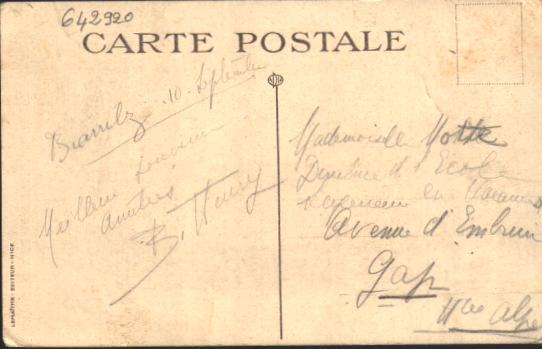 642920
CARTE POSTALE
Biarritz 10 Septembre
Meilleur souvenir
Amitiés
B. Henry
Mademoiselle Motte
Directrice d' Ecole
en Vacances
Avenue d' Embrun
Gap
Htes Alpes
LEMAÎTRE - EDITEUR - NICE